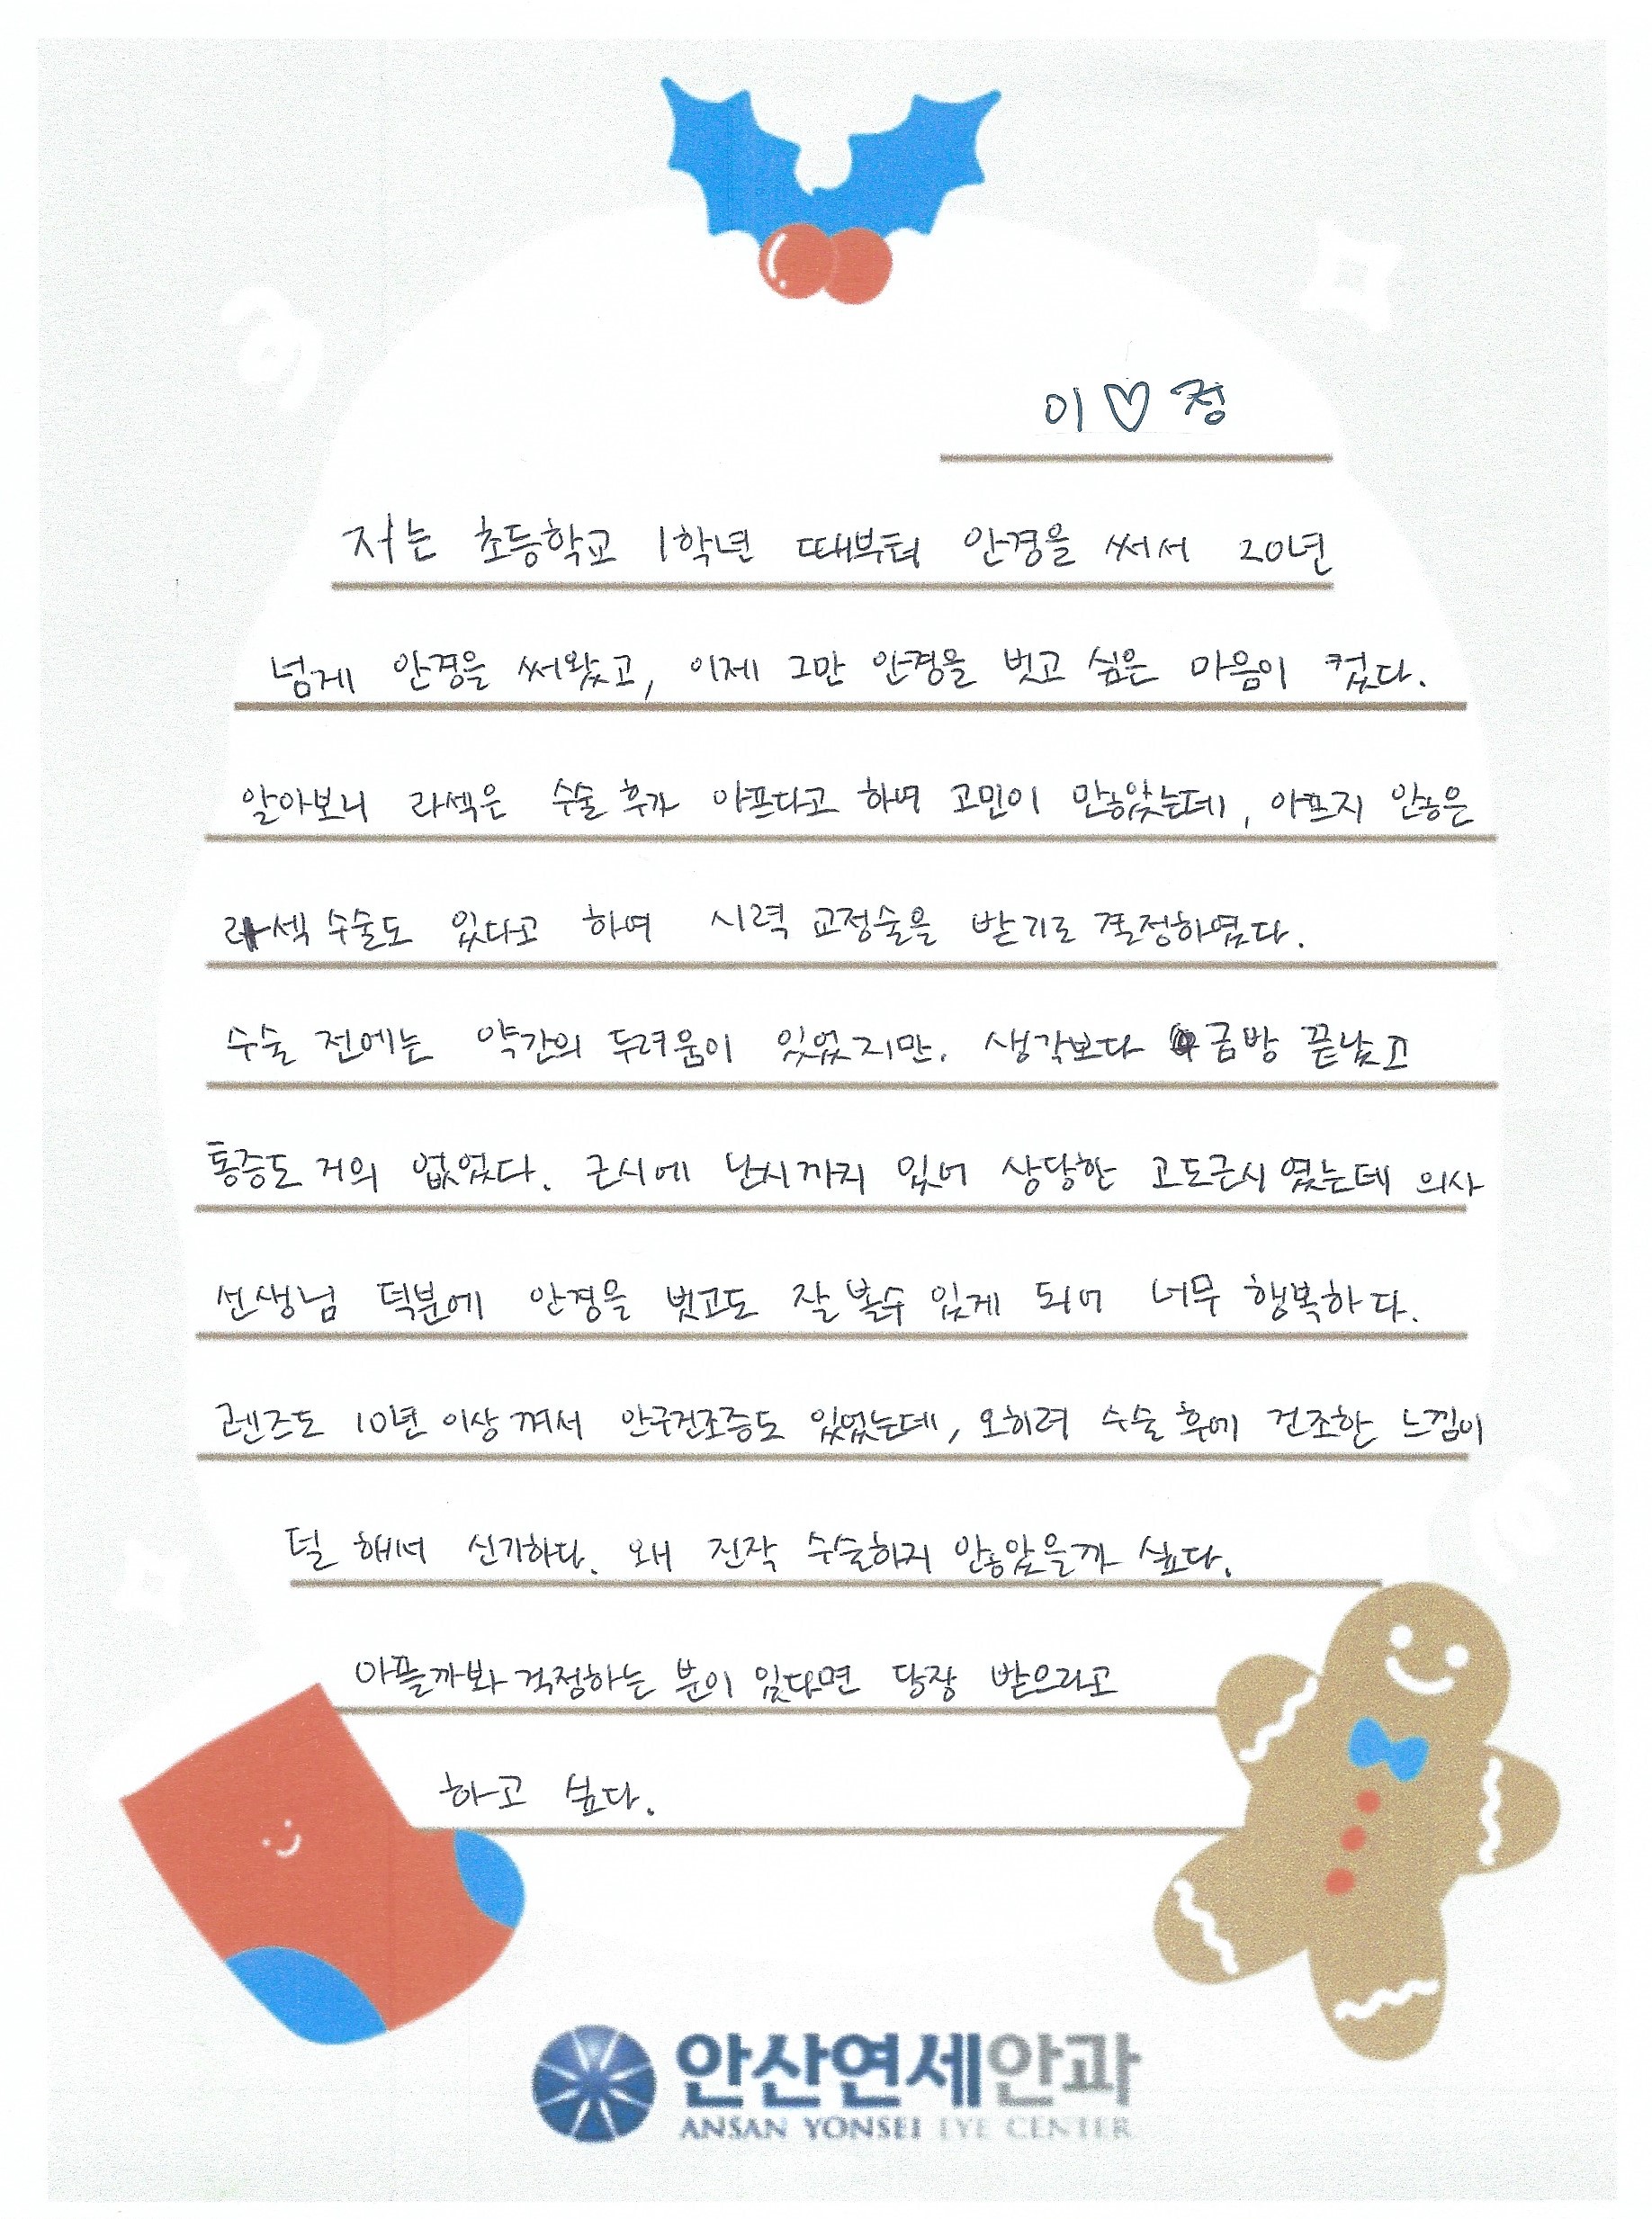 이♡정
저는 초등학교 1학년 때부터 안경을 써서 20년
넘게 안경을 써왔고, 이제 그만 안경을 벗고 싶은 마음이 컸다.
알아보니 라섹은 수술 후가 아프다고 하여 고민이 많았는데, 아프지 않은
라섹 수술도 있다고 하여 시력 교정술을 받기로 결정하였다.
수술 전에는 약간의 두려움이 있었지만, 생각보다 금방 끝났고
통증도 거의 없었다. 근시에 난시까지 있어 상당한 고도근시였는데 의사
선생님 덕분에 안경을 벗고도 잘 볼수 있게 되어 너무 행복하다.
렌즈도 10년 이상 껴서 안구건조증도 있었는데, 오히려 수술 후에 건조한 느낌이
덜 해서 신기하다. 왜 진작 수술하지 않았을까 싶다.
아플까봐 걱정하는 분이 있다면 당장 받으라고
하고 싶다.
안산연세안과
ANSAN YONSEI EYE CENTER